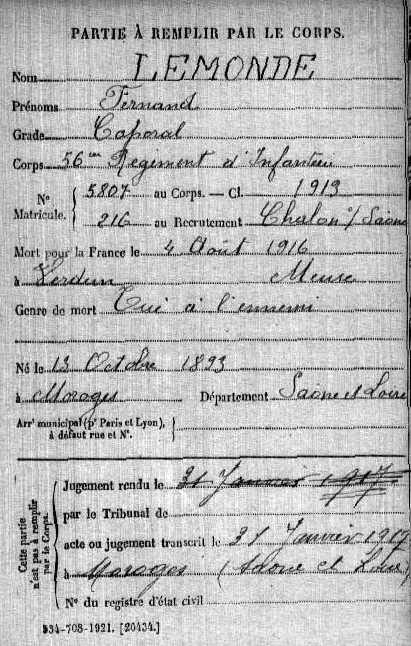 PARTIE À REMPLIR PAR LE CORPS.
Nom LEMONDE
Prénoms Fernand
Grade Caporal
Corps 56me Régiment d'Infanterie
N° Matricule. 5807 au Corps. — Cl. 1913
216 au Recrutement Chalon s/ Saône
Mort pour la France le 4 Août 1916
à Verdun Meuse
Genre de mort Tué à l'ennemi
Né le 13 Octobre 1893
à Moroges Département Saône et Loire
Arrt municipal (pr Paris et Lyon),
à défaut rue et N°.
Cette partie
n'est pas à remplir
par le Corps.
Jugement rendu le 31 Janvier 1917
par le Tribunal de
acte ou jugement transcrit le 31 Janvier 1917
à Moroges (Saône et Loire)
N° du registre d'état civil
534-708-1921. [20434.]